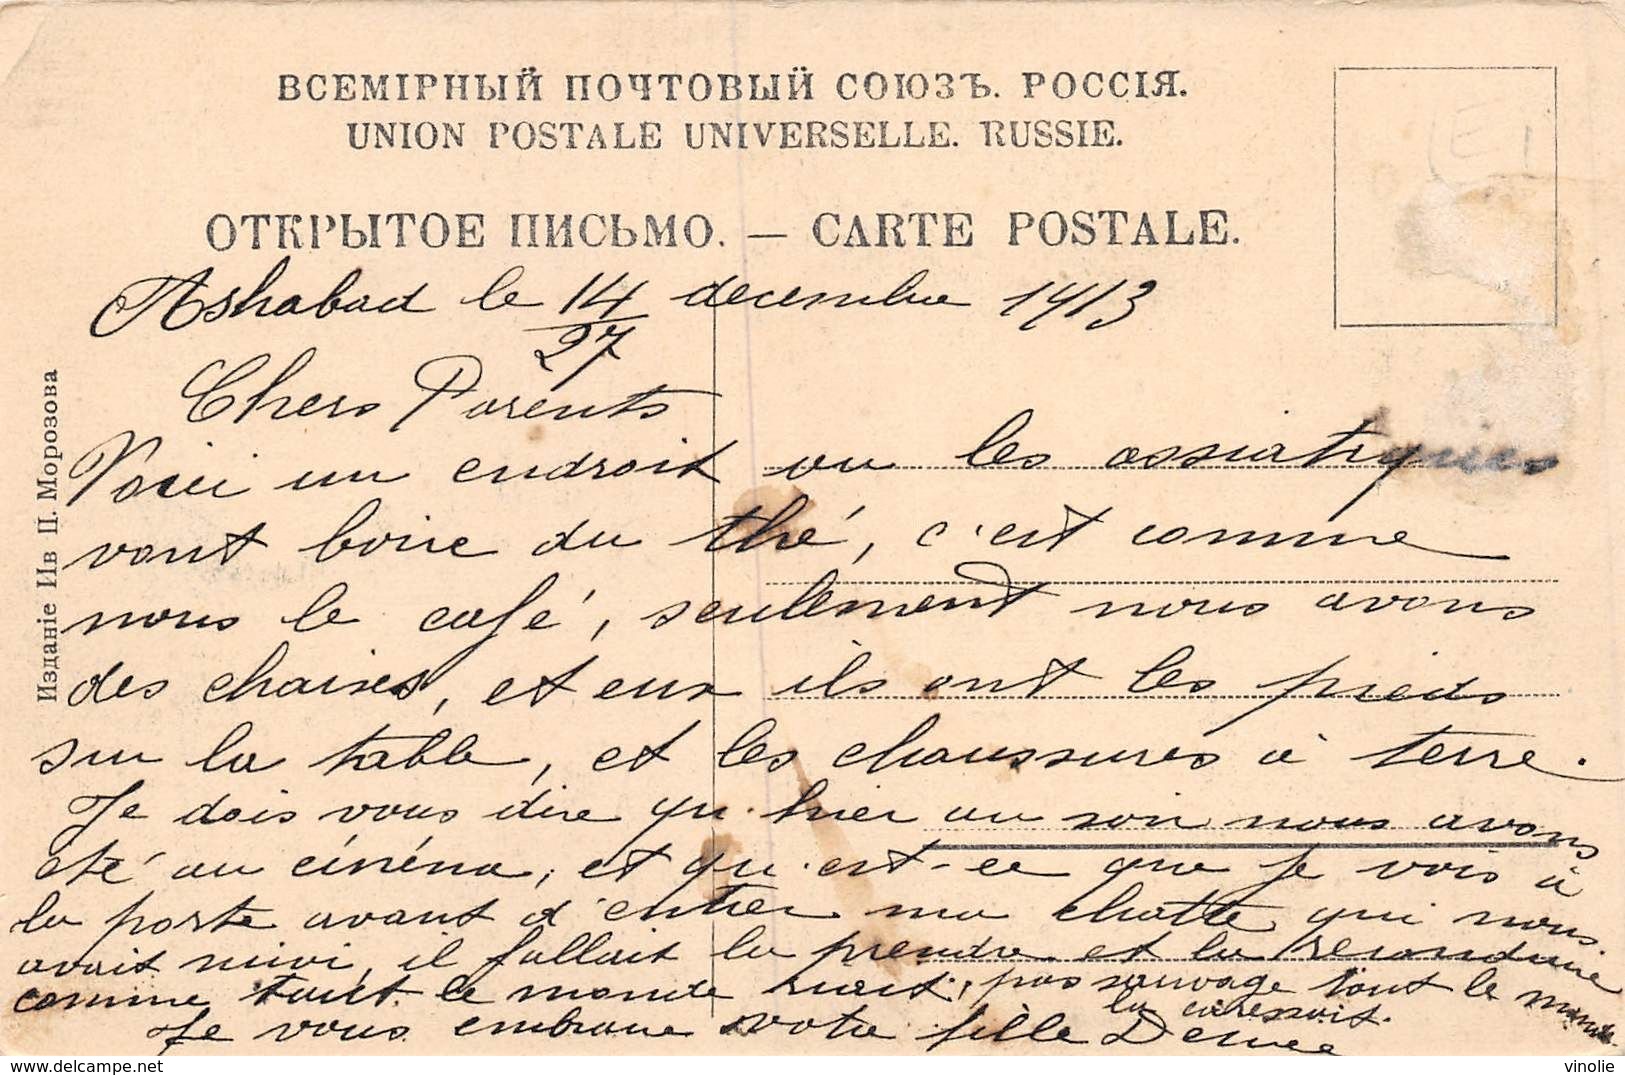 ВСЕМІРНЫЙ ПОЧТОВЫЙ СОЮЗЪ. РОССІЯ.
UNION POSTALE UNIVERSELLE. RUSSIE.
ОТКРЫТОЕ ПИСЬМО. — CARTE POSTALE.
Ashabad le 14/27 decembre 1913
Chers Parents
Voici un endroit ou les assiatiques
vont boire du thé, c'est comme
nous le café, seulement nous avons
des chaises, et eux ils ont les pieds
sur la table, et les chaussures à terre.
Je dois vous dire qu'hier au soir nous avons
été au cinéma, et qu'est-ce que je vois à
la porte avant d'entrer ma chatte qui nous
avait suivi, il fallait la prendre et la reconduire
comme tout le monde riait, pas sauvage tout le monde
la caressait.
Je vous embrasse votre fille Denise
Изданіе Ив П. Морозова
vinolie
delcampe.net